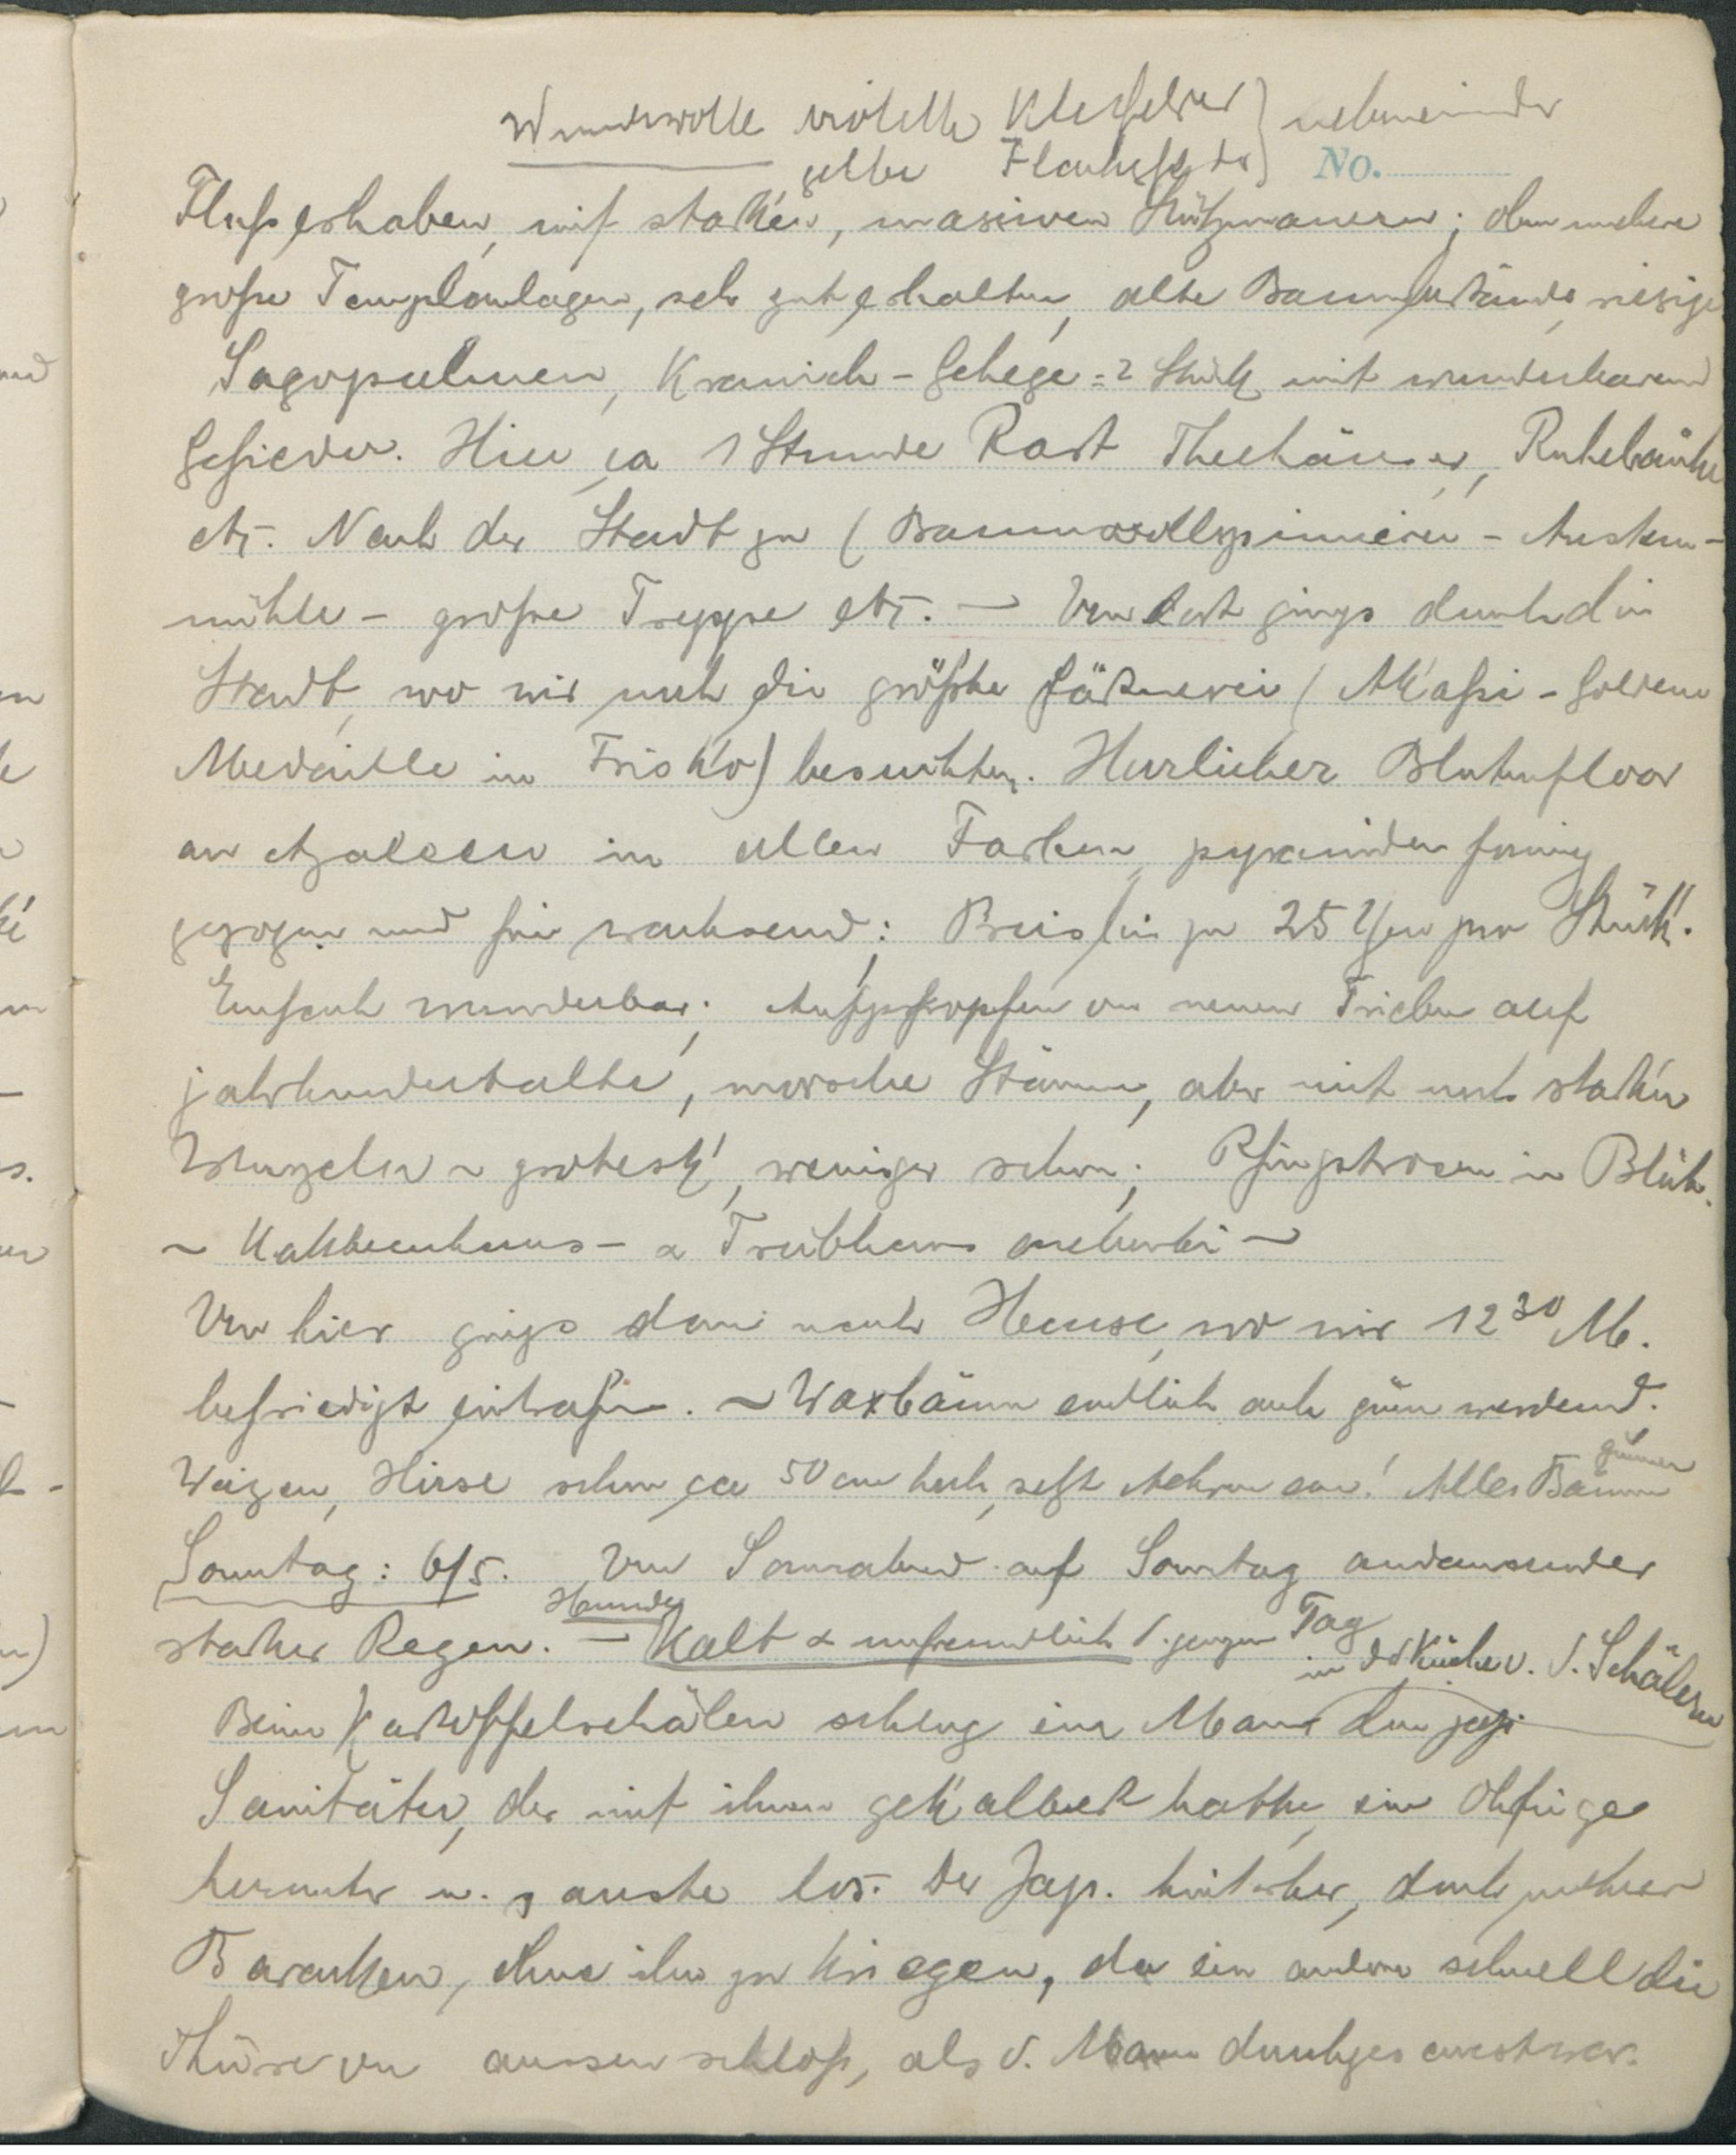 Wundervolle violette Kleefelder } nebeneinander
gelbe Flachsfelder } No.
Fluss erhaben, mit starken, masiven Stützmauern; oben mehrere
grosse Templanlagen, sehr gut erhalten, alte Baumbestände, riesige
Sagopalmen, Kranich-Gehege = 2 Stück mit wunderbarem
Gefieder. Hier, ca 1 Stunde Rast Theehäuser, Ruhebänke
etc. Nach der Stadt zu (Baumwollspinnerei - Austern-
mühle - grosse Treppe etc. — Von dort gings durch die
Stadt, wo wir noch die grösste Gärtnerei (Akassi - Goldene
Medaille in Frisko) besuchten. Herrlicher Blütenfloor
an Azaleeen in allen Farben, pyramidenförmig
gezogen und frei wachsend; Preis bis zu 25 Yen pro Stück.
Einfach wunderbar; Aufpfropfen von neuen Trieben auf
jahrhundertalte, morsche Stämme, aber mit noch starken
Wurzeln ~ grotesk, weniger schön; Pfingstrosen in Blüte.
~ Kakteenhaus - & Treibhaus nebenbei ~
Von hier gings dann nach Hause, wo wir 12 30 M.
befriedigt eintrafen. ~ Waxbäume endlich auch grün werdend.
Weizen, Hirse schon ca 50 cm hoch, setzt Aehren an! Alles Bäume
grünen
Sonntag: 6/5. Von Sonnabend auf Sonntag andauernder
starker Regen. — Kalt & unfreundlich d. ganzen Tag
Hunde
in der Küche v. d. Schälern
Beim Kartoffelschälen schlug ein Mann dem jap.
Sanitäter, der mit ihnen gekalbert hatte, eine Ohrfeige
herunter u. sauste los. Der Jap. hinterher, durch mehrere
Baracken, ohne ihn zu kriegen, da ein anderer schnell die
Thüre von aussen schloss, als d. Mann durchgesaust war.